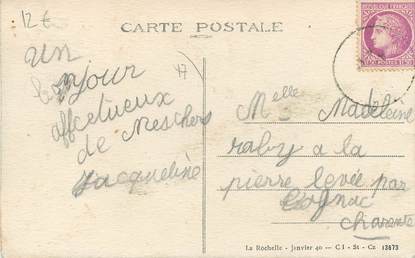 12 €
CARTE POSTALE
un
bonjour
affectueux
de Meschers
Jacqueline
17
Melle Madeleine
raby a la
pierre levée par
Cognac
charente
La Rochelle - Janvier 40 - C I - St - Cz 13673